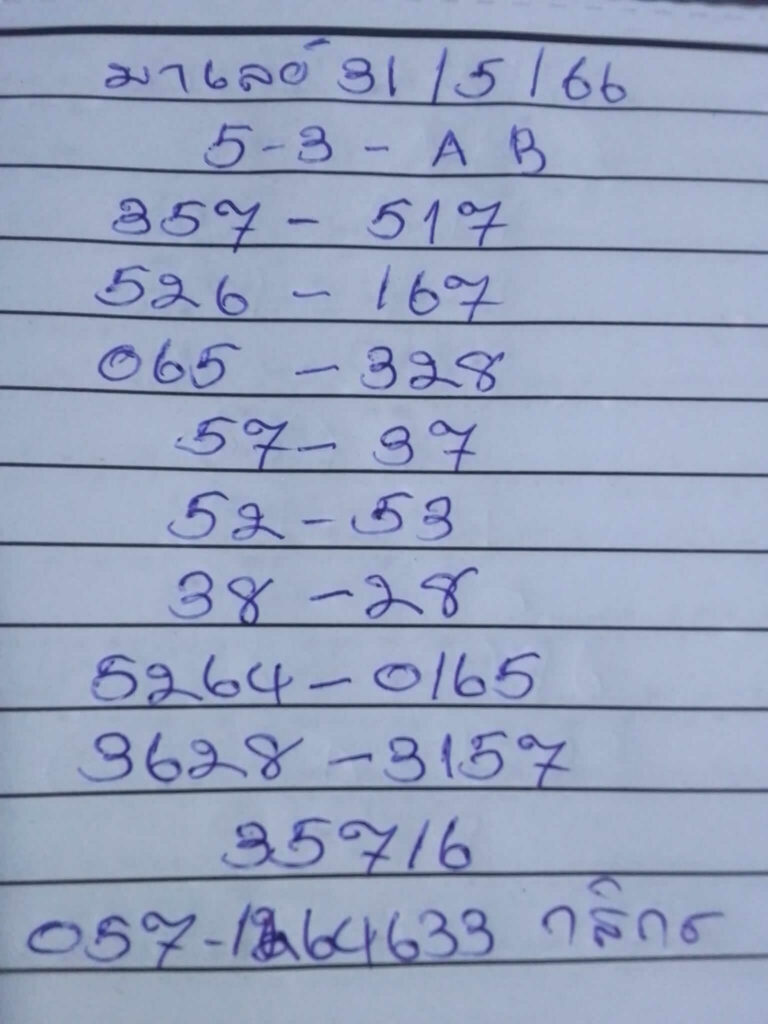 มาเลย์ 31/5/66
5-3 - A B
357 - 517
526 - 167
065 - 328
57 - 37
52 - 53
38 - 28
5264 - 0165
3628 - 3157
35716
กสิกร